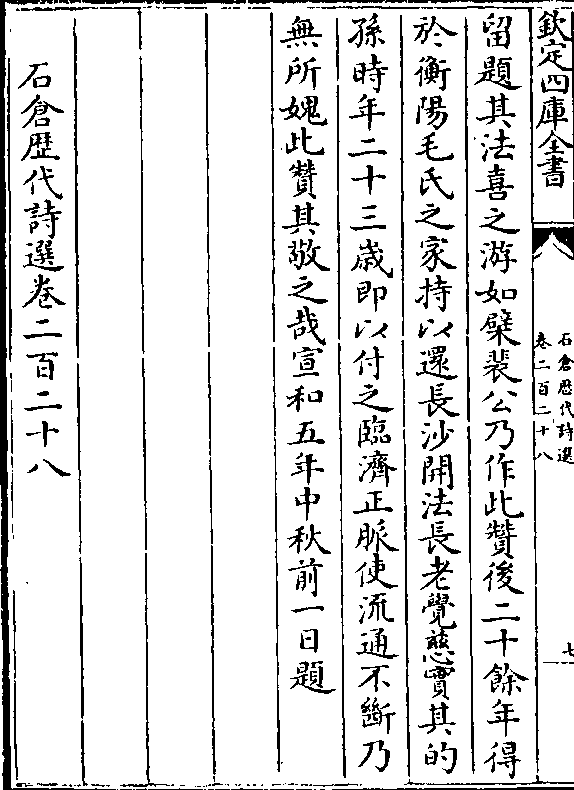 欽定四庫全書
石倉歴代詩選
卷二百二十八
七
留題其法喜之游如甓裴公乃作此贊後二十餘年得
於衡陽毛氏之家持以還長沙開法長老覺慈實其的
孫時年二十三歳即以付之臨濟正脈使流通不斷乃
無所媿此贊其敬之哉宣和五年中秋前一日題
石倉歴代詩選卷二百二十八